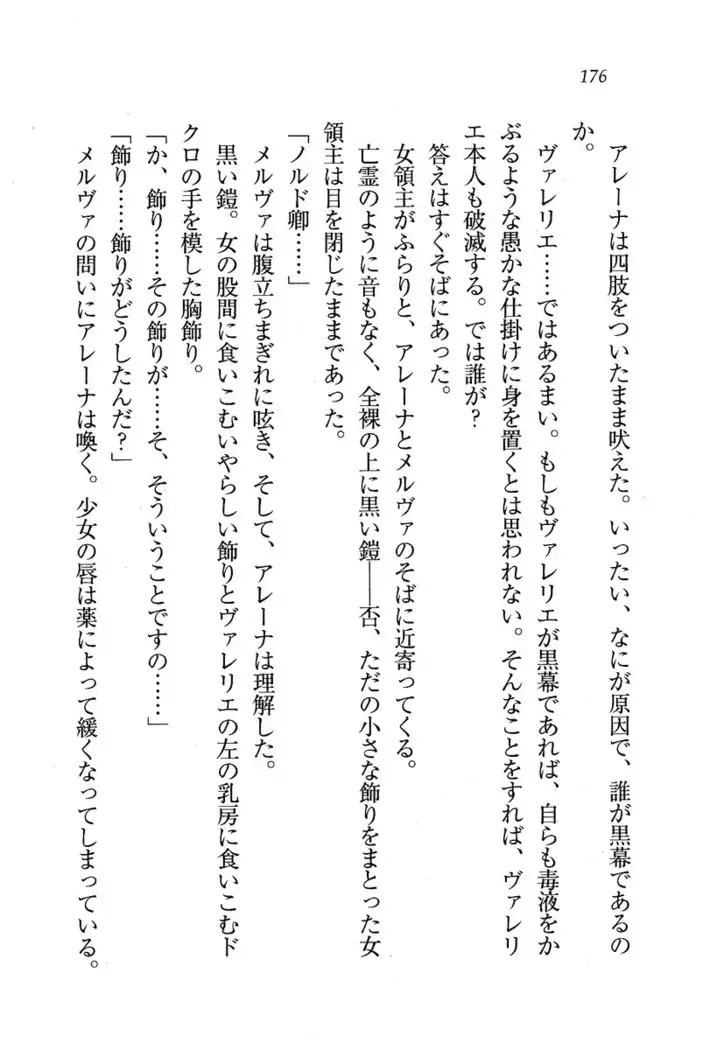 176
アレーナは四肢をついたまま吠えた。いったい、なにが原因で、誰が黒幕であるの
か。
ヴァレリエ……ではあるまい。もしもヴァレリエが黒幕であれば、自らも毒液をか
ぶるような愚かな仕掛けに身を置くとは思われない。そんなことをすれば、ヴァレリ
エ本人も破滅する。では誰が？
答えはすぐそばにあった。
女領主がふらりと、アレーナとメルヴァのそばに近寄ってくる。
亡霊のように音もなく、全裸の上に黒い鎧――否、ただの小さな飾りをまとった女
領主は目を閉じたままであった。
「ノルド卿……」
メルヴァは腹立ちまぎれに呟き、そして、アレーナは理解した。
黒い鎧。女の股間に食いこむいやらしい飾りとヴァレリエの左の乳房に食いこむド
クロの手を模した胸飾り。
「か、飾り……その飾りが……そ、そういうことですの……」
「飾り……飾りがどうしたんだ？」
メルヴァの問いにアレーナは喚く。少女の唇は薬によって緩くなってしまっている。